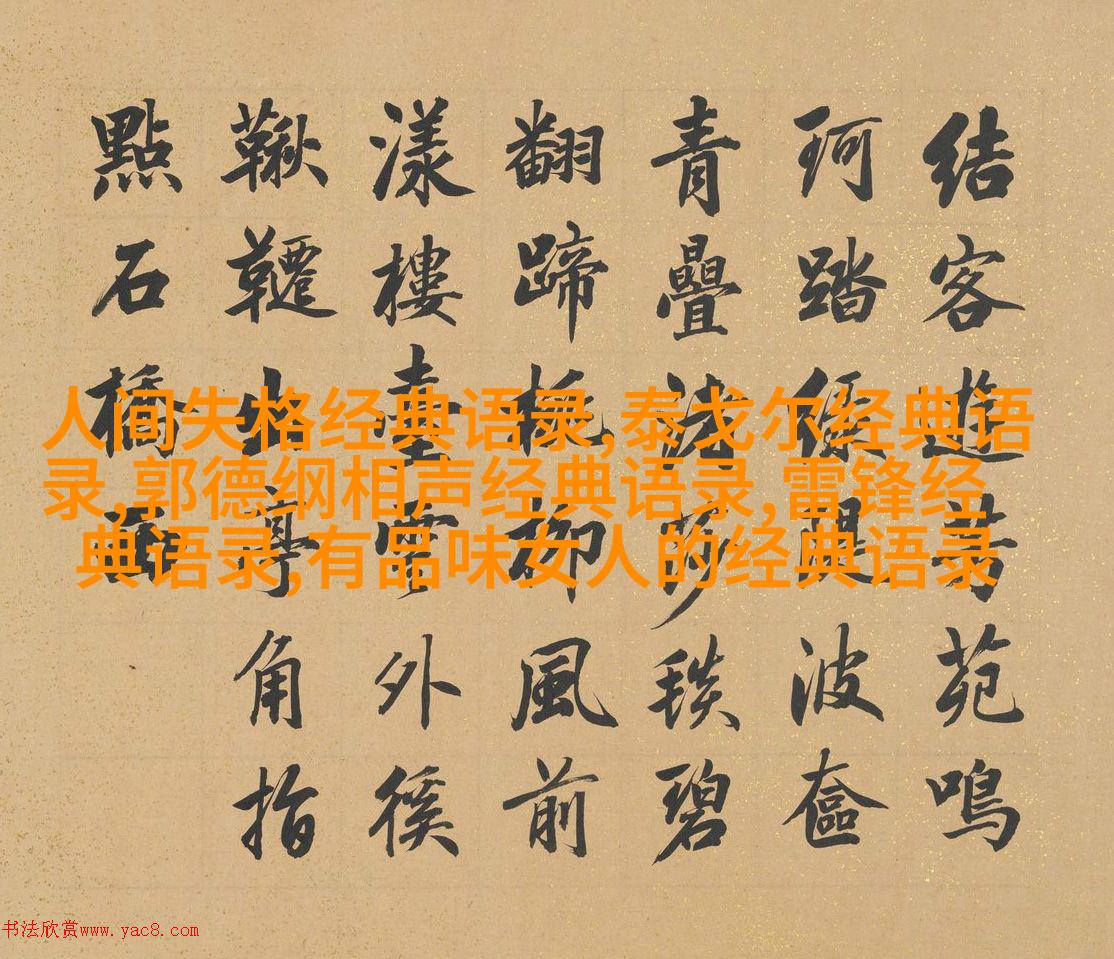 結客遊芳苑鳴
珂踏綠堤波奩
青疊淺莎毯碧
翻蹄拖柳風前
漾樓臺雲外徯
鞦韆出亭角指
點石橋西
人间失格经典语录,泰戈尔经典语
录,郭德纲相声经典语录,雷锋经
典语录,有品味女人的经典语录
书法欣赏www.yac8.com